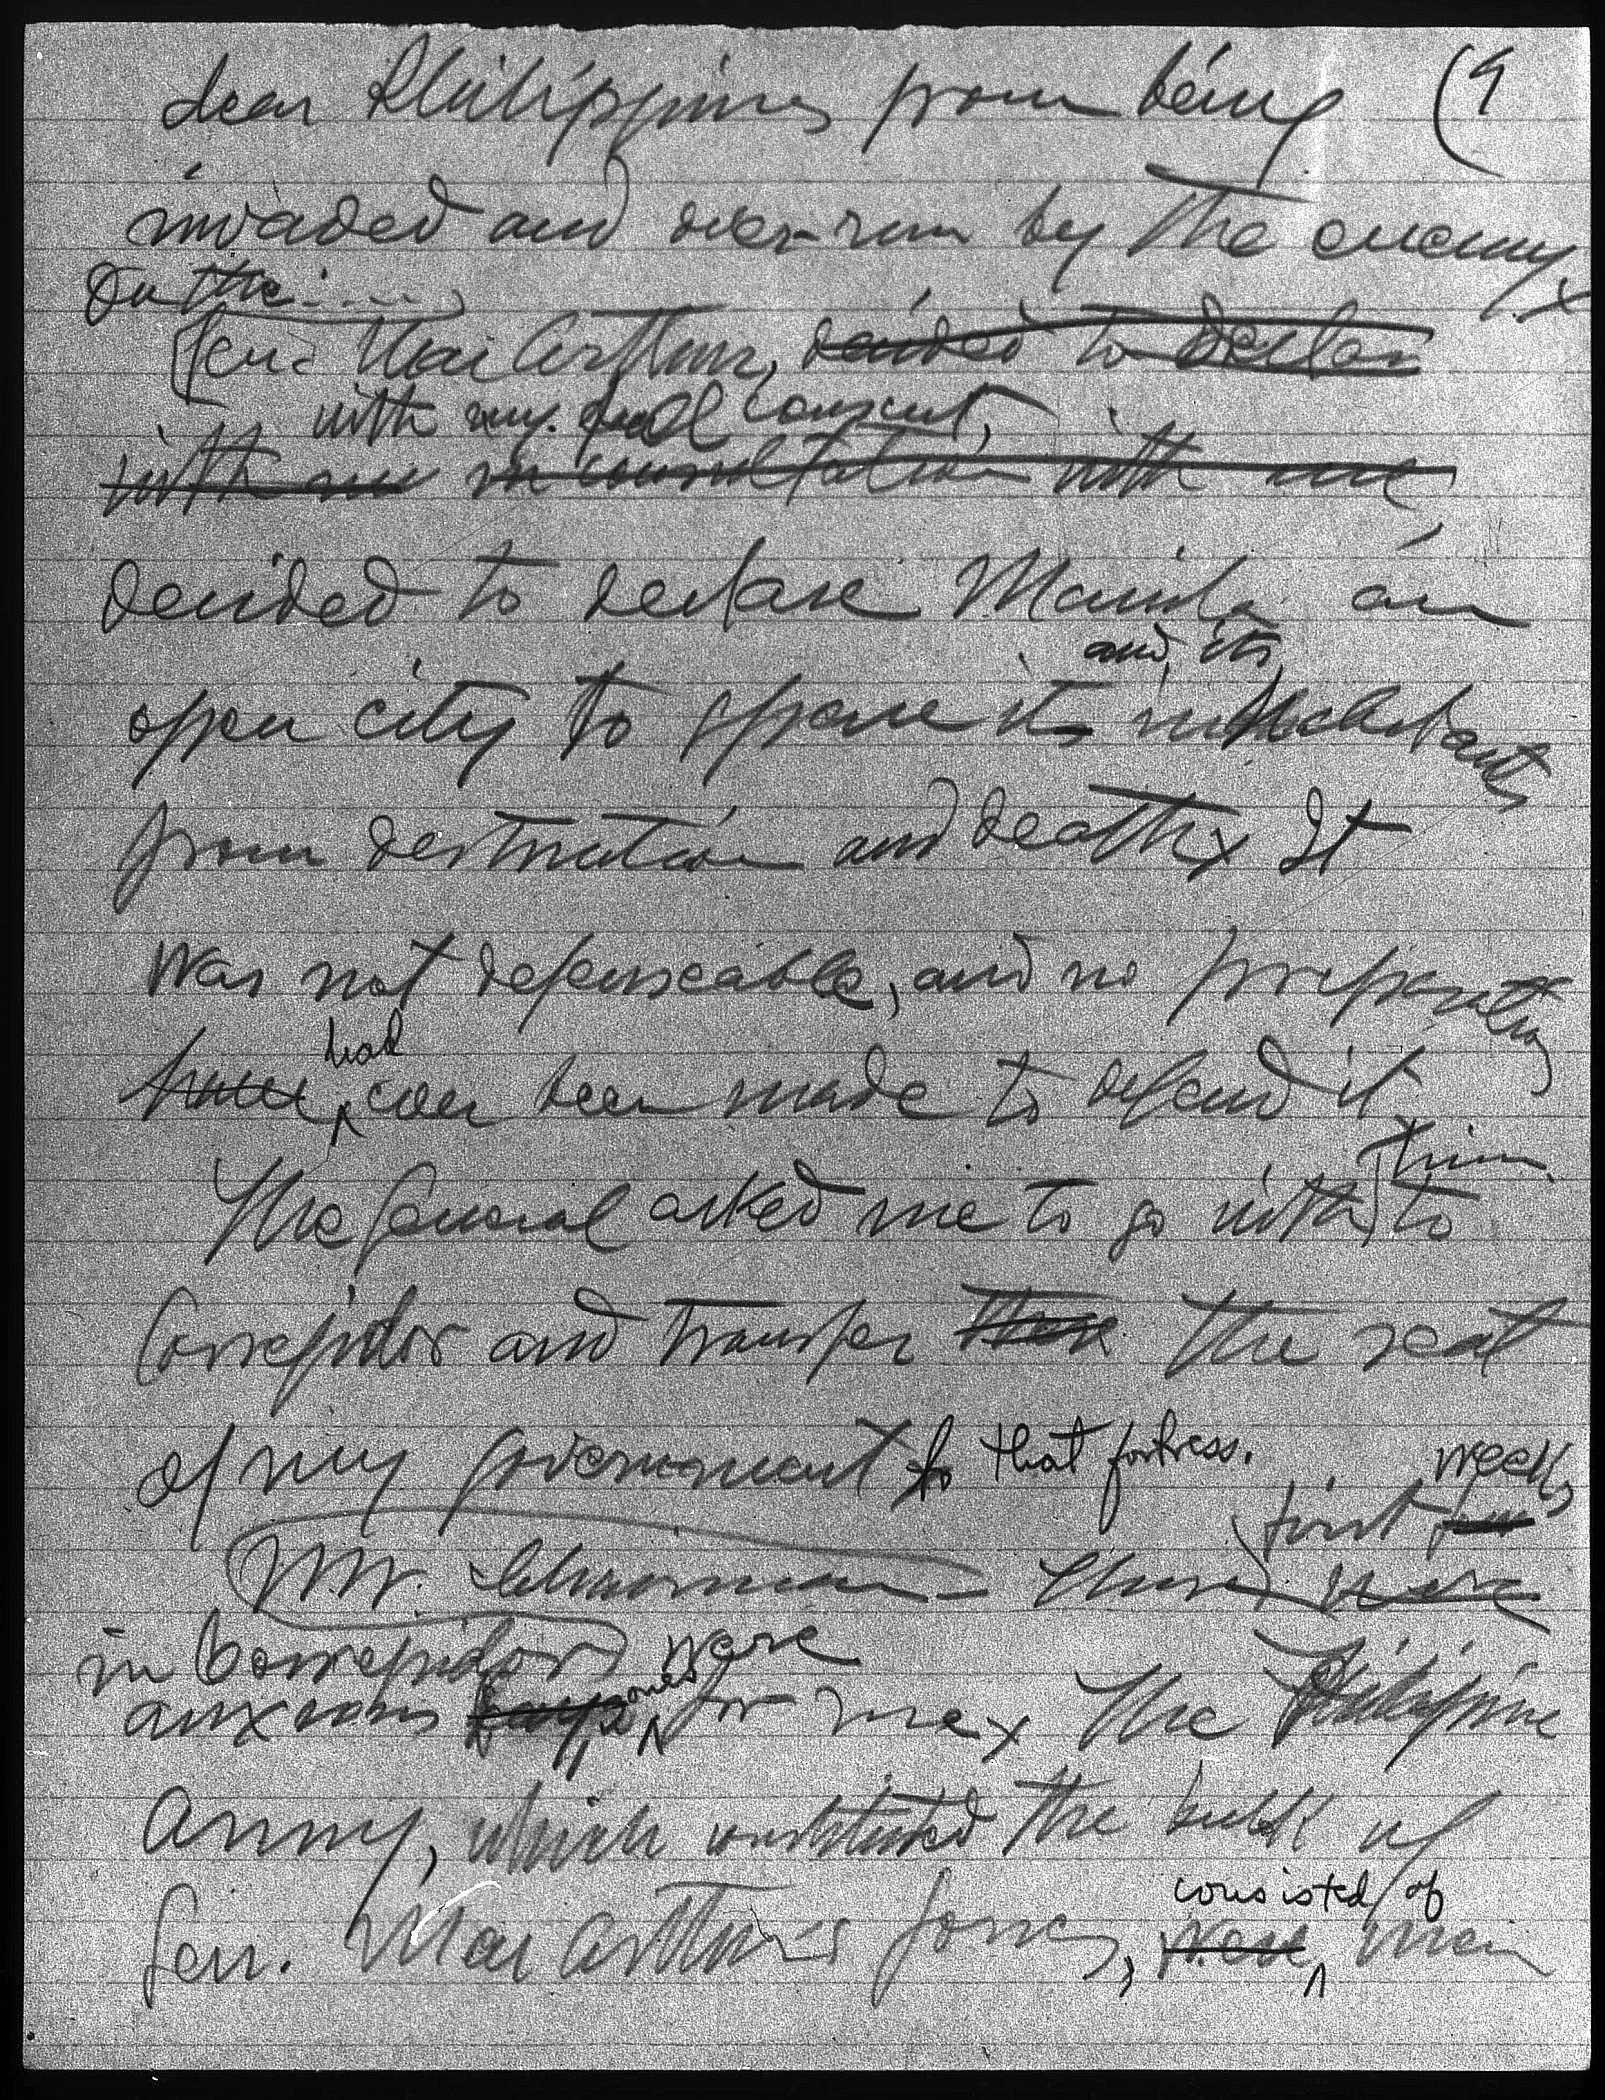 dear Philippines from being (9
invaded and over-run by the enemy x
On the .....
Gen. MacArthur, decided to declare
with my full consent,
with me in consultation with me
decided to declare Manila an
and its
open city to spare its inhabitants
from destruction and death x It
was not defenseable, and no preparation
had
have ever been made to defend it
him
The General asked me to go with to
Corregidor and transfer there the seat
of my government to that fortress.
weeks
first
Mr. Chairman - Those were
in Corregidor were
ones
anxious days for me x The Philippine
Army, which constituted the bulk of
consisted of
Gen. MacArthur's forces, were men